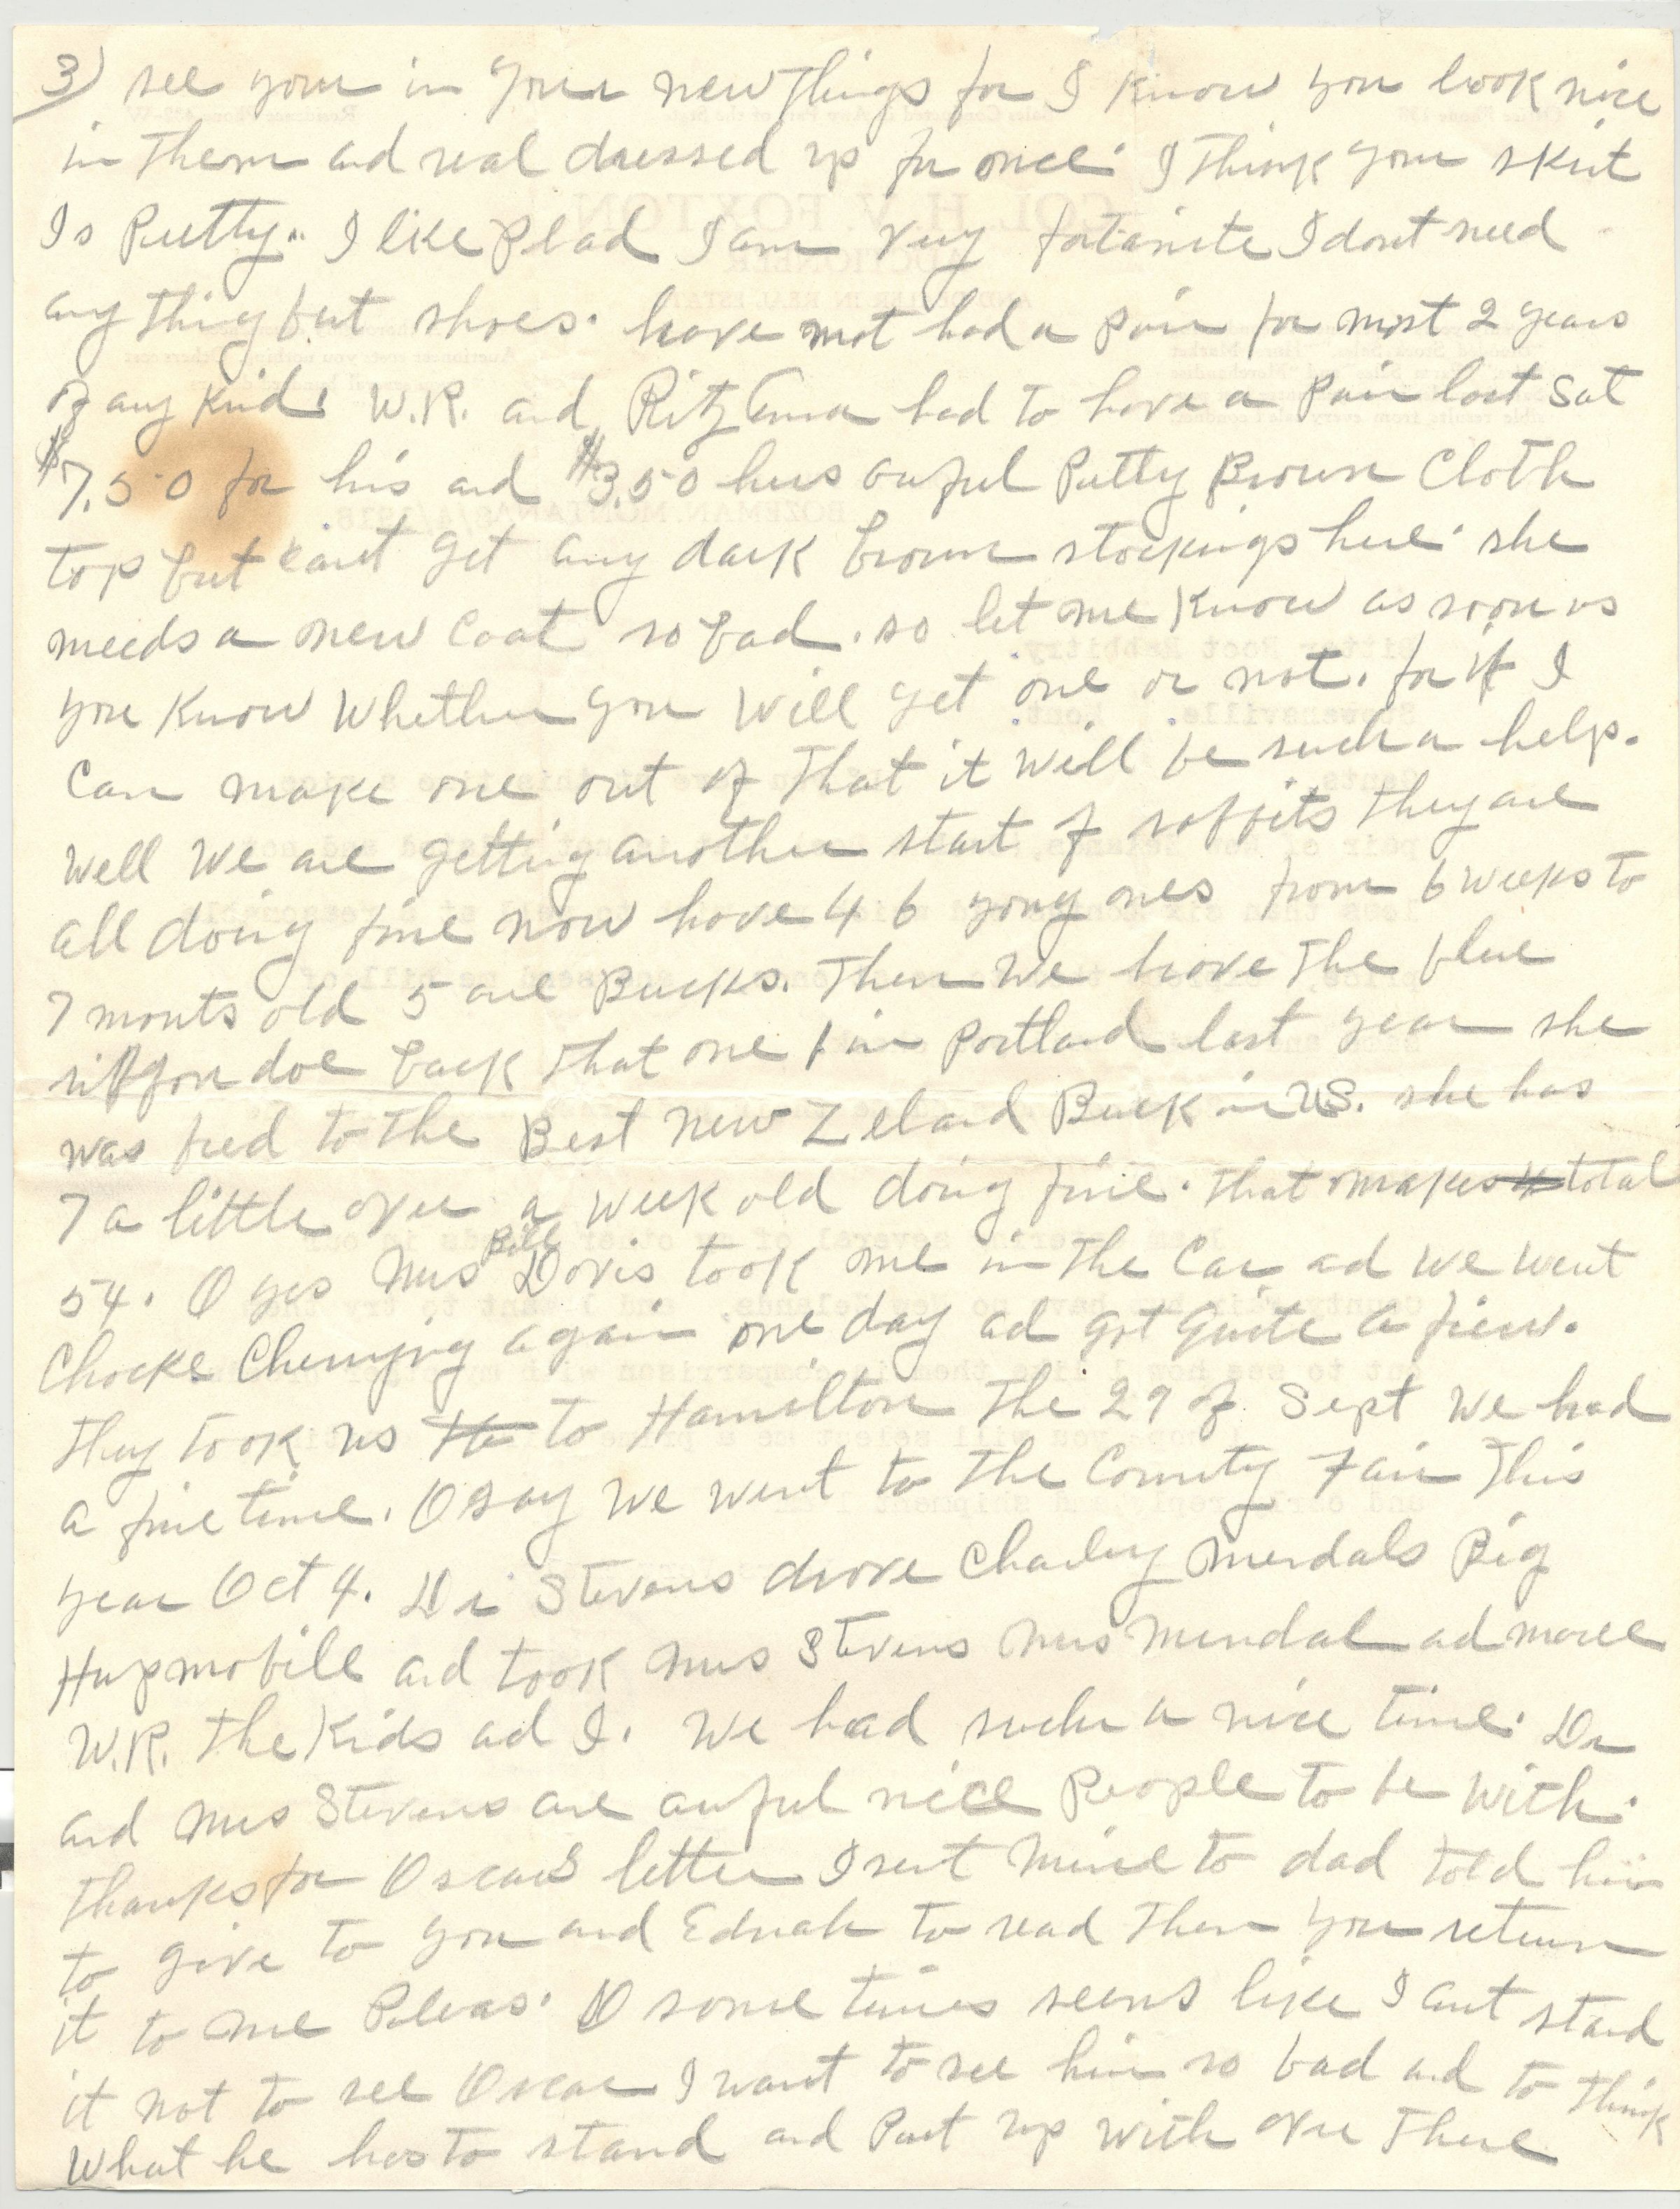 3) see your in your new things for I know you look nice
in them and real dressed up for once. I think your skirt
Is Pretty. I like Plad I am very fortanite I dont need
any thing but shoes. have not had a pair for most 2 years
of any kind. W.R. and had to have a pair last Sat
$7.50 for his and $3.50 hers awful Pretty Brown Cloth
top but cant get any dark brown stockings here. she
needs a new Coat so bad. so let me know as soon as
you know whether you will get one or not. for if I
Can make one out of that it will be such a help.
Well we are getting another start of rabbits they are
all doing fine now have 46 yong ones from 6 weeks to
7 monts old 5 are Bucks. Then we have the blue
doe back that one 1 in Portland last year she
was bred to the Best New Zeland Buck in US. she has
7 a little over a week old doing fine. that makes total
54. O yes Mrs Bill Davis took me in the Car ad we went
Chocke Cherrying again one day ad got quite a fiew.
They took us to Hamilton the 29 of Sept we had
a fine time. O say we went to the County Fair This
year Oct 4. Dr Stevens drove Charley Mendals Big
Hupmobile and took Mrs Stevens Mrs Mendal ad
W.R. the Kids ad I. We had such a nice time. Dr
and Mrs Stevens are awful nice People to be with.
thanks for Oscars letter I sent mine to dad told him
to give to you and Ednah to read then you return
it to me Pleas. O some times seems like I cant stand
it not to see Oscar I want to see him so bad and to think
What he has to stand and Put up with over There